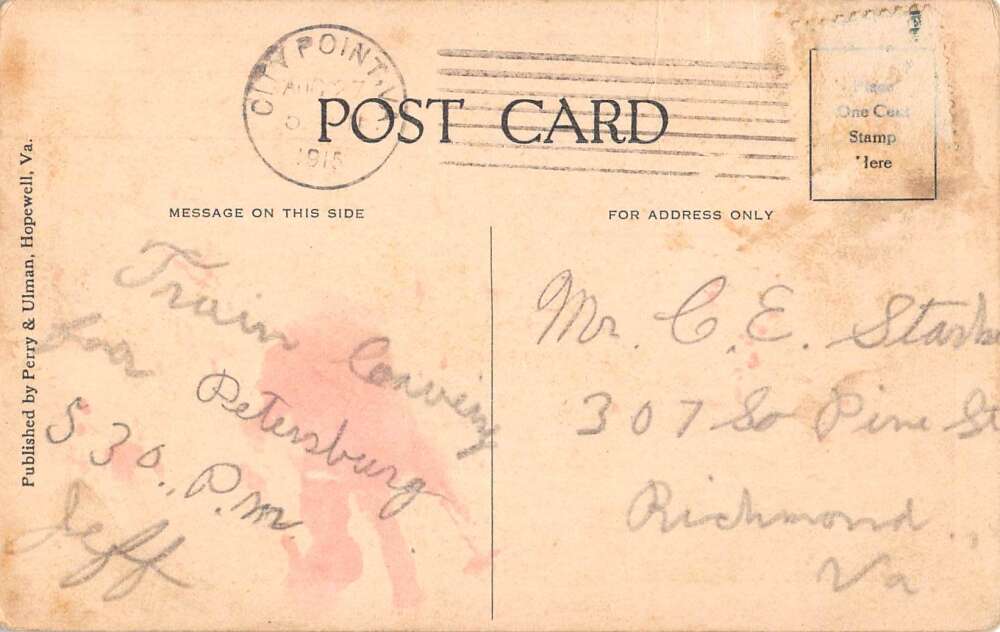 CITY POINT, VA
1915
POST CARD
Place
One Cent
Stamp
Here
MESSAGE ON THIS SIDE
FOR ADDRESS ONLY
Published by Perry & Ulman, Hopewell, Va.
Train
for Petersburg
5 30., P.M
Jeff
Mr. C. E. Stark
307 So Pine St
Richmond,
Va